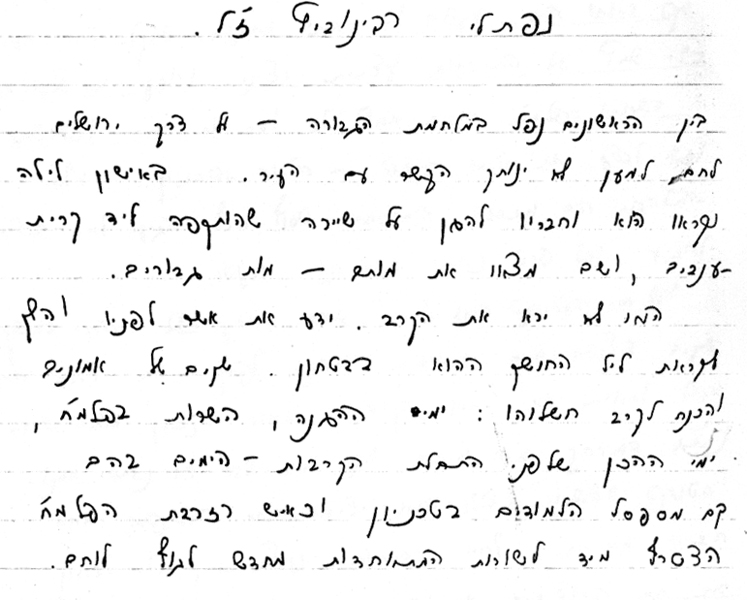 נפתלי רבינוביץ ז"ל.
בין הראשונים נפל במלחמת הגבורה – על דרך ירושלים
לחם, למען לא ינותק הקשר עם העיר. באישון לילה
נקראו הוא וחבריו להגן על שיירה שהותקפה ליד קרית
-ענבים, ושם מצאו את מותם – מות גבורים.
המו לא ירא את הקרב. ידע את אשר לפניו והלך
לקראת ליל החושך ההוא בבטחון. שנים של אמונים
והכנה לקרב חשלוהו: ימי ההגנה, השרות בפלמ"ח,
ימי ההכן שלפני התחלת הקרבות – הימים בהם
קם מספסל הלמודים בטכניון וכאיש רזרבת הפלמ"ח
הצטרף מיד לשורות המתאחדות מחדש לגוף לוחם.